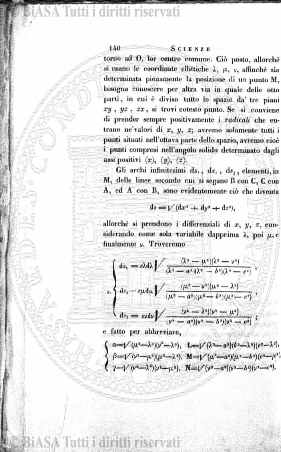 © BiASA Tutti i diritti riservati
140 SCIENZE
torno ad O, lor centro comune. Ciò posto, allorchè
si usano le coordinate ellittiche λ, μ, ν, affinchè sia
determinata pienamente la posizione di un punto M,
bisogna conoscere per altra via in quale delle otto
parti, in cui è diviso tutto lo spazio da' tre piani
xy, yz, zx, si trovi cotesto punto. Se si conviene
di prender sempre positivamente i radicali che en-
trano ne'valori di x, y, z; avremo solamente tutti i
punti situati nell'ottava parte dello spazio, avremo cioè
i punti compresi nell'angolo solido determinato dagli
assi positivi (x), (y), (z).
Gli archi infinitesimi ds₁, ds₂, ds₃, elementi, in
M, delle linee secondo cui si segano B con C, C con
A, ed A con B, sono evidentemente ciò che diventa
ds=√(dx²+dy²+dz²),
allorchè si prendono i differenziali di x, y, z, con-
siderando come sola variabile dapprima λ, poi μ, e
finalmente ν. Troveremo
e fatto per abbreviare,
© BiASA Tutti i diritti riservati